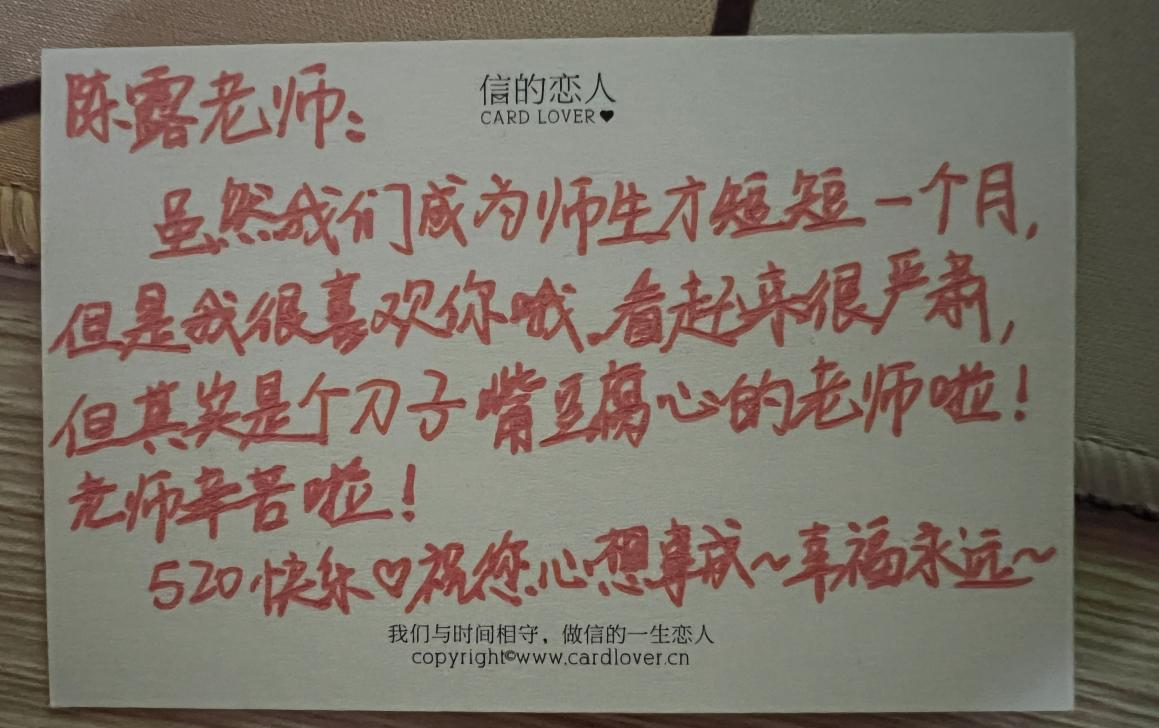 信的恋人
CARD LOVER♥
陈露老师：
虽然我们成为师生才短短一个月，
但是我很喜欢你哦，看起来很严肃，
但其实是个刀子嘴豆腐心的老师啦！
老师辛苦啦！
520快乐♡祝您心想事成～幸福永远～
我们与时间相守，做信的一生恋人
copyright©www.cardlover.cn